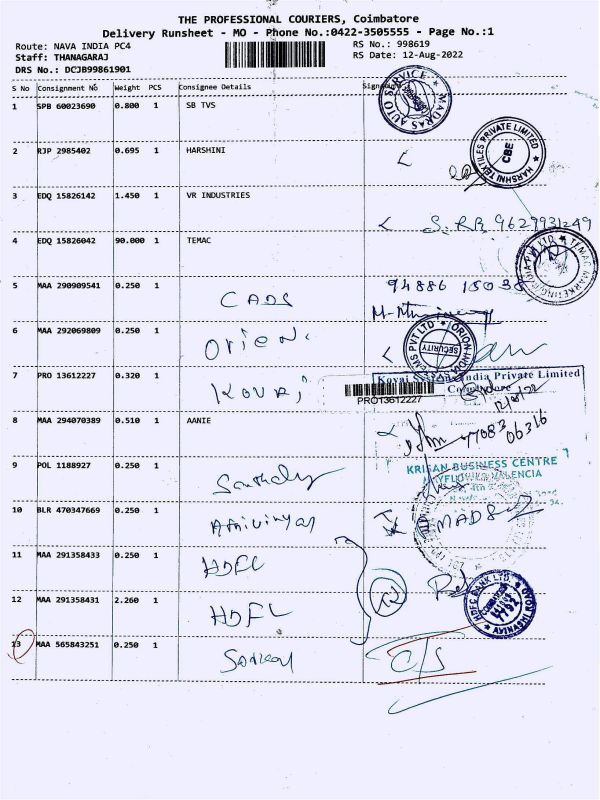 THE PROFESSIONAL COURIERS, Coimbatore
Delivery Runsheet - MO - Phone No.:0422-3505555 - Page No.:1
Route: NAVA INDIA PC4 RS No.: 998619
Staff: THANAGARAJ RS Date: 12-Aug-2022
DRS No.: DCJB99861901
S No Consignment No Weight PCS Consignee Details
1 SPB 60023690 0.800 1 SB TVS
MADRAS AUTO SERVICE
2 RJP 2985402 0.695 1 HARSHINI
HARSHNI TEXTILES PRIVATE LIMITED CBE
3 EDQ 15826142 1.450 1 VR INDUSTRIES
9629931249
4 EDQ 15826042 90.000 1 TEMAC
5 MAA 290909541 0.250 1 CADS 94886 15038
6 MAA 292069809 0.250 1 Orien.
SECURITY
7 PRO 13612227 0.320 1 Kovai
India Private Limited
Coimbatore
PRO13612227
8 MAA 294070389 0.510 1 AANIE
97083 06316
KRISAN BUSINESS CENTRE
MAYFLOWER VALENCIA
9 POL 1188927 0.250 1
10 BLR 470347669 0.250 1
11 MAA 291358433 0.250 1 HDFC
12 MAA 291358431 2.260 1 HDFC
HDFC BANK LTD. AVINASHI ROAD
13 MAA 565843251 0.250 1